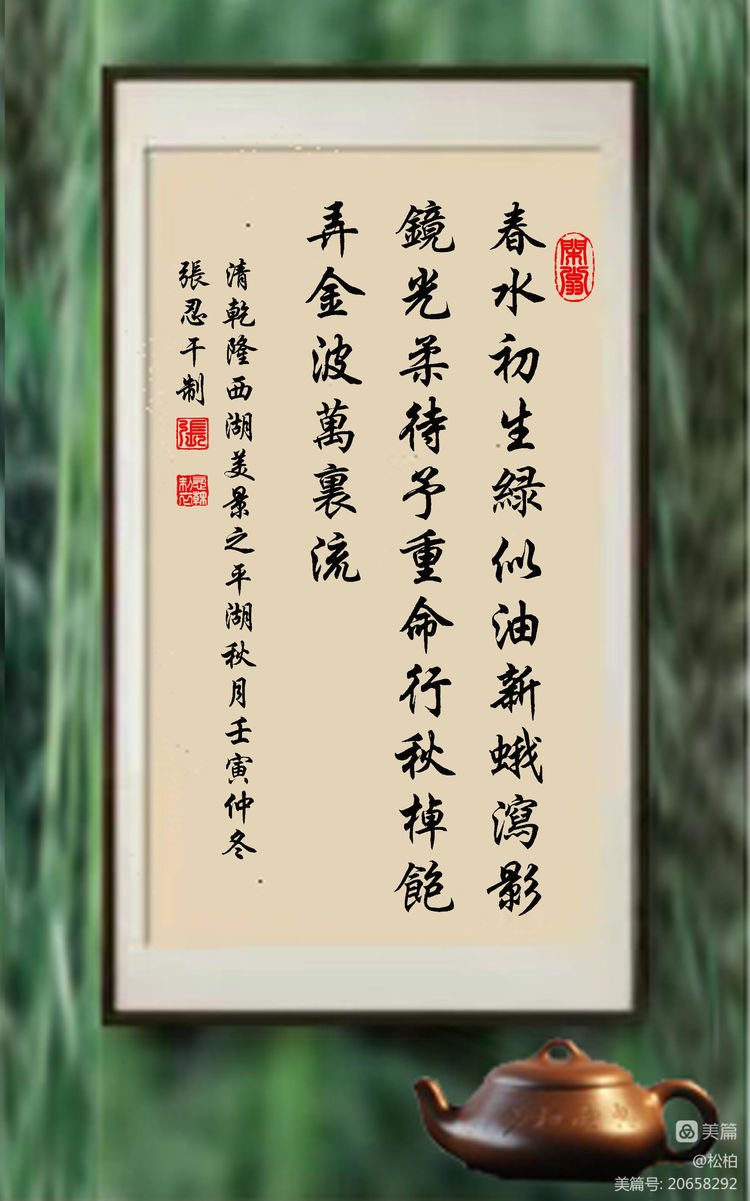 春水初生緑似油新蛾瀉影
鏡光柔待予重命行秋棹飽
弄金波萬裏流
清乾隆西湖美景之平湖秋月壬寅仲冬
張忍干制
張
美篇
@松柏
美篇号: 20658292